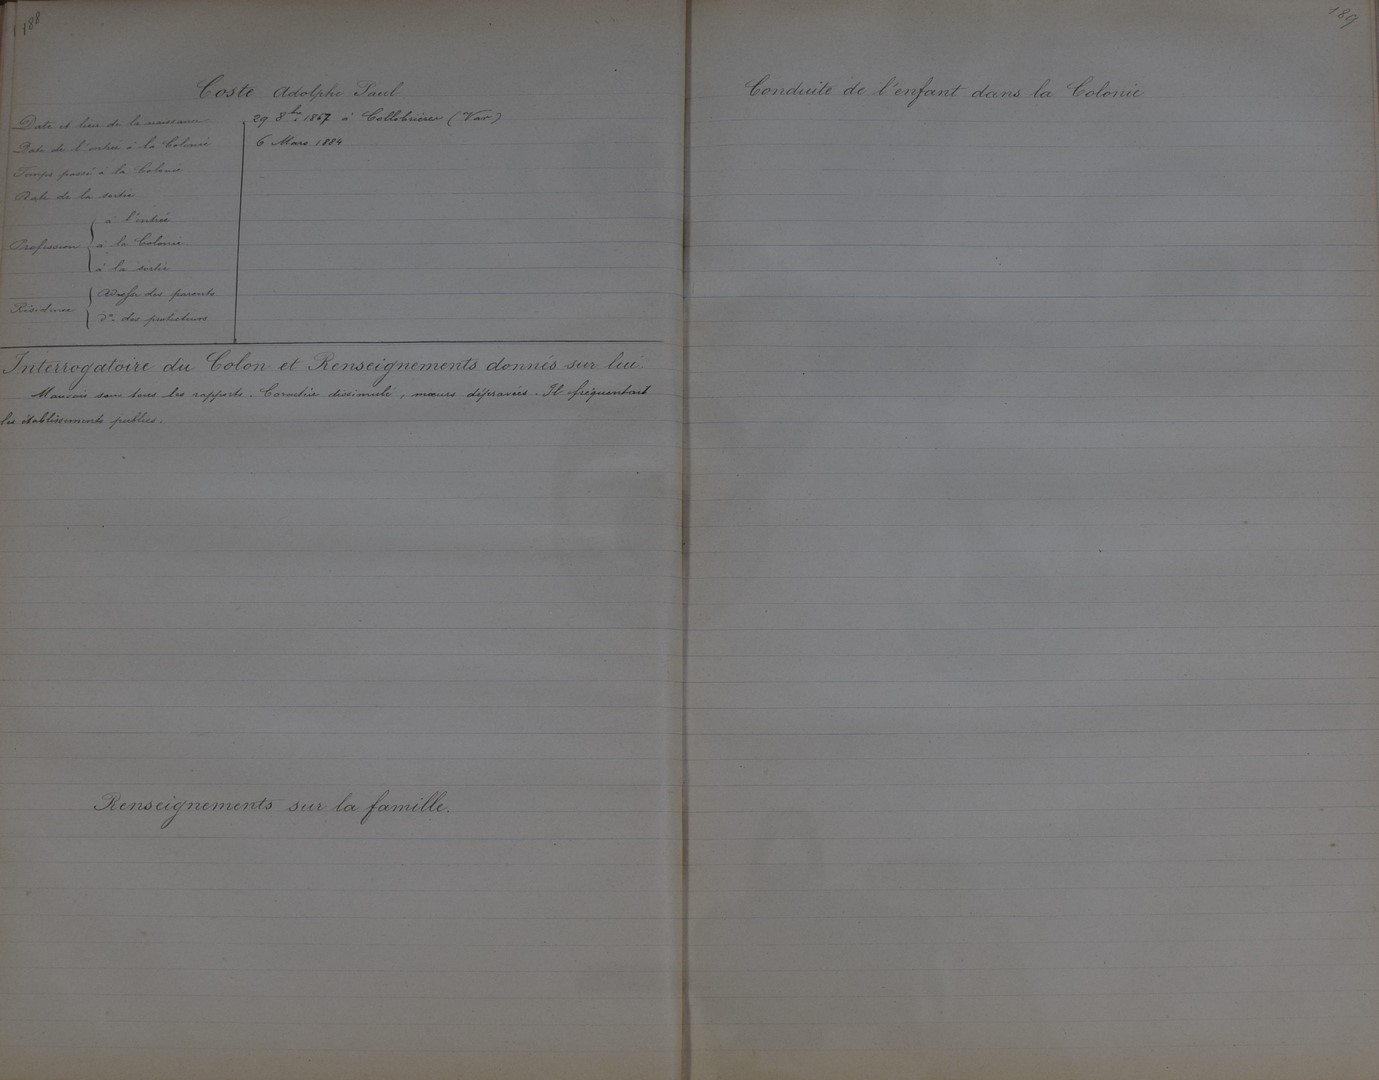 188
Coste Adolphe Paul
Date et lieu de la naissance 29 8bre 1867 à Collobrières (Var)
Date de l'entrée à la Colonie 6 Mars 1884
Temps passé à la Colonie
Date de la sortie
à l'entrée
Profession à la Colonie
à la sortie
Adresse des parents
Résidence
do. des protecteurs
Interrogatoire du Colon et Renseignements donnés sur lui.
Mauvais sous tous les rapports. Caractère dissimulé, mœurs dépravées. Il fréquentait
les établissements publics.
Renseignements sur la famille.
189
Conduite de l'enfant dans la Colonie